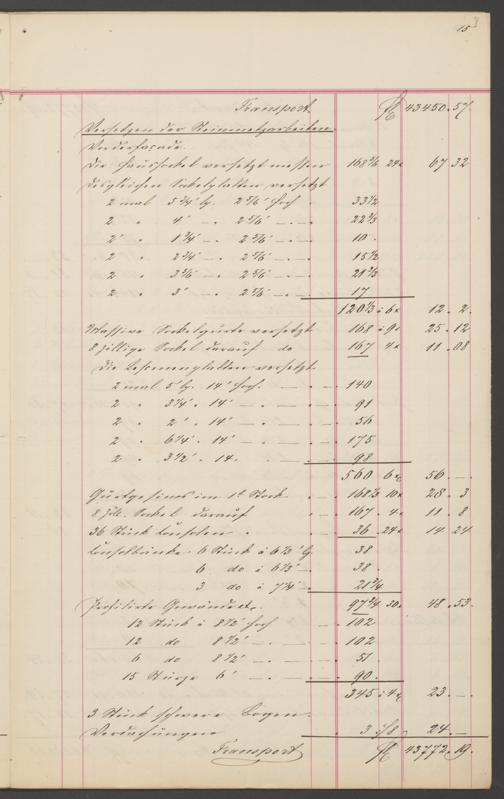 15
Transport. fl 43450. 57.
Versetzen der Steinmetzarbeiten.
Vorderfaçade.
Die Haussockel versetzt messen 168 24x 67 32
desgleichen Sockelplatten versetzt
2 mal 5 3/4' lg. 2 5/6' hoch 33 1/2
2 " 4' — " 2 5/6' — " — 22 2/3
2' " 1 3/4' — " 2 5/6' — " — 10 .
2 " 2 3/4' — " 2 5/6' — " — 15 1/2
2 " 3 5/6' — " 2 5/6' — " — 21 2/3
2 " 3' — " 2 5/6' — " — 17
120 1/3 à 6x 12 . 2 .
Massive Sockelgurte versetzt 168 à 9x 25 . 12
8 zöllige Sockel darauf do 167 4x 11 . 08
Die Lesenenplatten versetzt
2 mal 5' lg. 14' hoch. — " — 140
2 " 3 1/4' " 14' — " — 91
2 " 2' " 14' — " — 56
2 " 6 1/4' " 14' — " — 175
2 " 3 1/2' " 14. — " — 98
560 6x 56 . —
Gurtgesims im 1t Stock 168 10x 28 . 3
8 zöll. Sockel darauf 167 . 4x 11 . 8
36 Stück Consolen " 36 24x 14 24
6 Stück à 6 1/3' lg 38
6 do à 6 1/3' — 38 .
3 do à 7 1/4' — 21 3/4
Profilirte Gewände 97 3/4 30x 48 . 53
12 Stück à 8 1/2' hoch — 102
12 do 8 1/2' — " — 102
6 do 8 1/2' — " — 51
15 Stürze 6' — " — 90 .
345 à 4x 23 . —
3 Stück schwere Bogen-
Verdachungen 3 à f 8 24 . —
Transport fl 43772. 19.